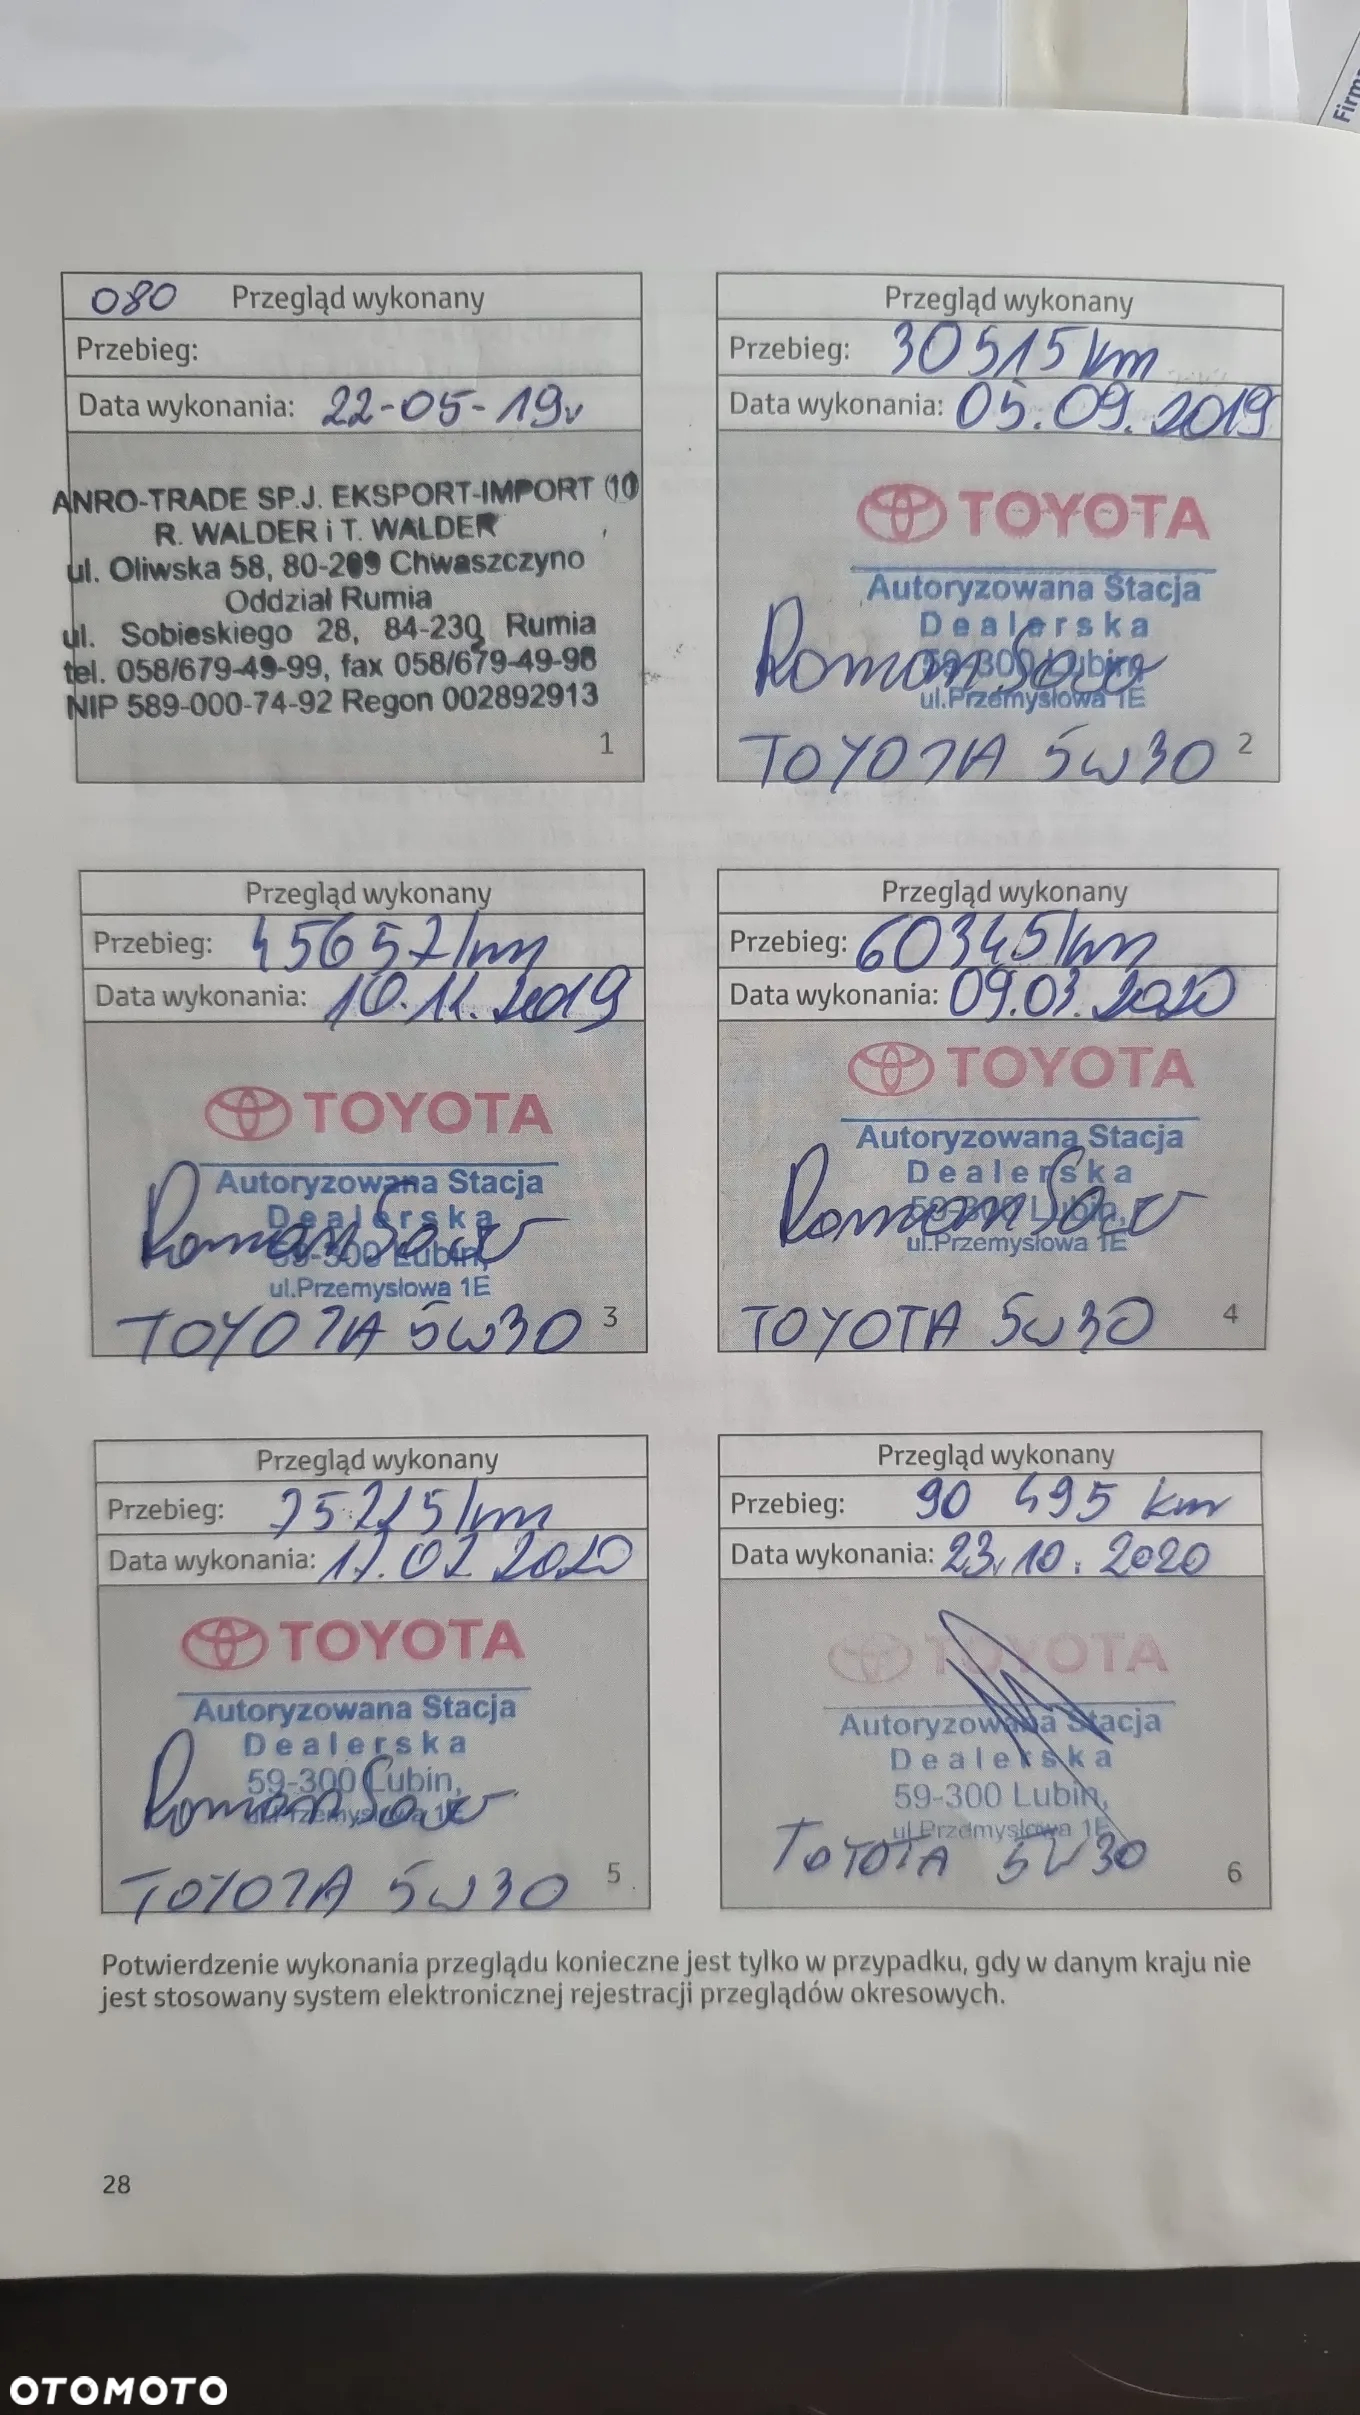 Firm
080 Przegląd wykonany
Przebieg:
Data wykonania: 22-05-19r
ANRO-TRADE SP.J. EKSPORT-IMPORT (10)
R. WALDER i T. WALDER
ul. Oliwska 58, 80-209 Chwaszczyno
Oddział Rumia
ul. Sobieskiego 28, 84-230 Rumia
tel. 058/679-49-99, fax 058/679-49-98
NIP 589-000-74-92 Regon 002892913
1
Przegląd wykonany
Przebieg: 30515 km
Data wykonania: 05.09.2019
TOYOTA
Autoryzowana Stacja
Dealerska
59-300 Lubin,
ul.Przemysłowa 1E
TOYOTA 5W30
2
Przegląd wykonany
Przebieg: 45657 km
Data wykonania: 10.11.2019
TOYOTA
Autoryzowana Stacja
Dealerska
59-300 Lubin,
ul.Przemysłowa 1E
TOYOTA 5W30
3
Przegląd wykonany
Przebieg: 60345 km
Data wykonania: 09.03.2020
TOYOTA
Autoryzowana Stacja
Dealerska
59-300 Lubin,
ul.Przemysłowa 1E
TOYOTA 5W30
4
Przegląd wykonany
Przebieg: 75215 km
Data wykonania: 17.07.2020
TOYOTA
Autoryzowana Stacja
Dealerska
59-300 Lubin,
ul.Przemysłowa 1E
TOYOTA 5W30
5
Przegląd wykonany
Przebieg: 90 495 km
Data wykonania: 23.10.2020
TOYOTA
Autoryzowana Stacja
Dealerska
59-300 Lubin,
ul.Przemysłowa 1E
TOYOTA 5W30
6
Potwierdzenie wykonania przeglądu konieczne jest tylko w przypadku, gdy w danym kraju nie
jest stosowany system elektronicznej rejestracji przeglądów okresowych.
28
OTOMOTO